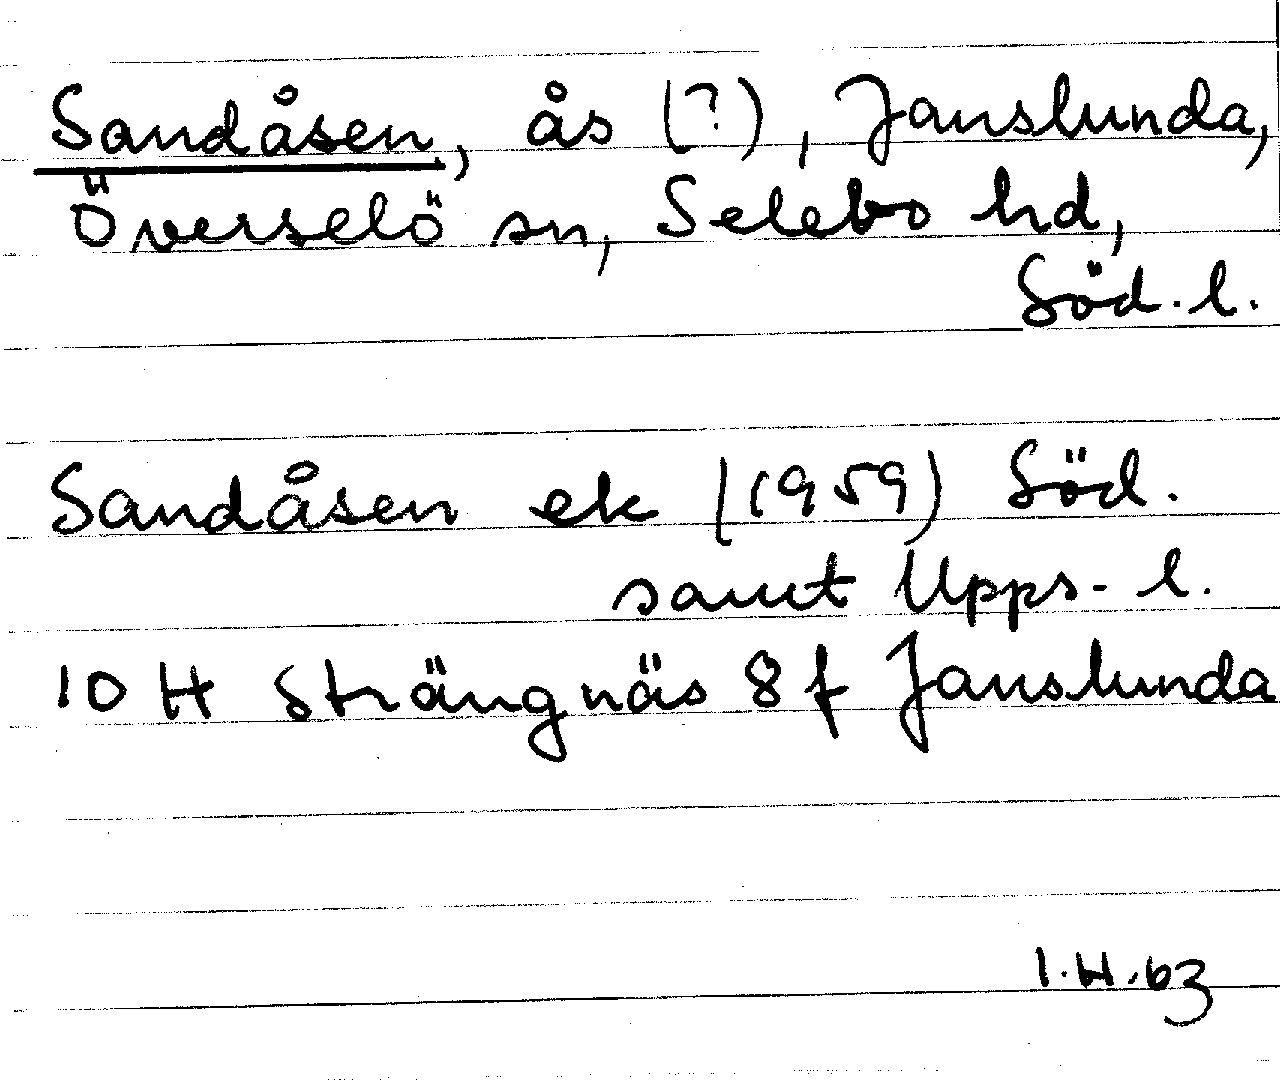 Sandåsen, ås (?), Janslunda,
Överselö sn, Selebo hd,
Söd. l.
Sandåsen ek (1959) Söd.
samt Upps. l.
10 H Strängnäs 8 f Janslunda
I.H.63